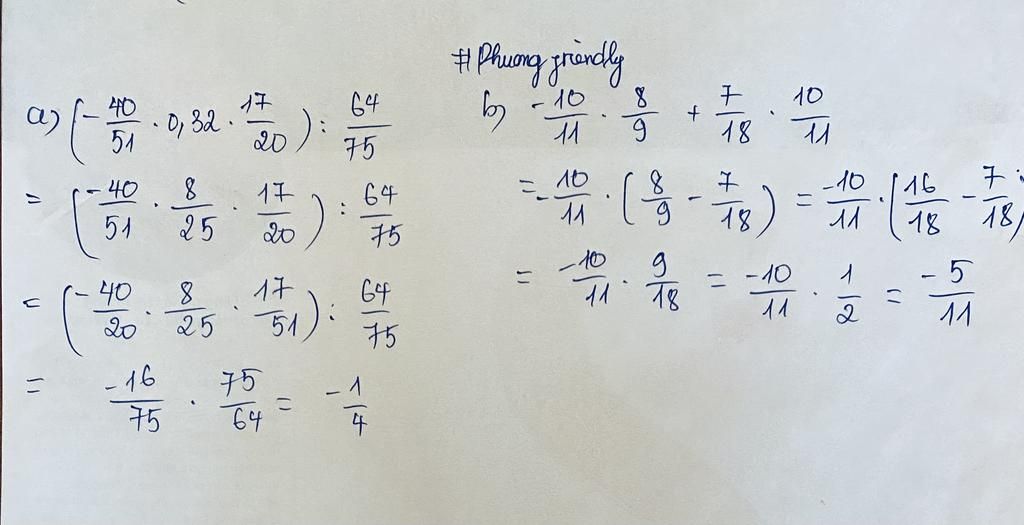 #Phuong friendly
a) (-40/51 . 0,32 . 17/20) : 64/75
= (-40/51 . 8/25 . 17/20) : 64/75
= (-40/20 . 8/25 . 17/51) : 64/75
= -16/75 . 75/64 = -1/4
b) -10/11 . 8/9 + 7/18 . 10/11
= -10/11 . (8/9 - 7/18) = -10/11 . (16/18 - 7/18)
= -10/11 . 9/18 = -10/11 . 1/2 = -5/11